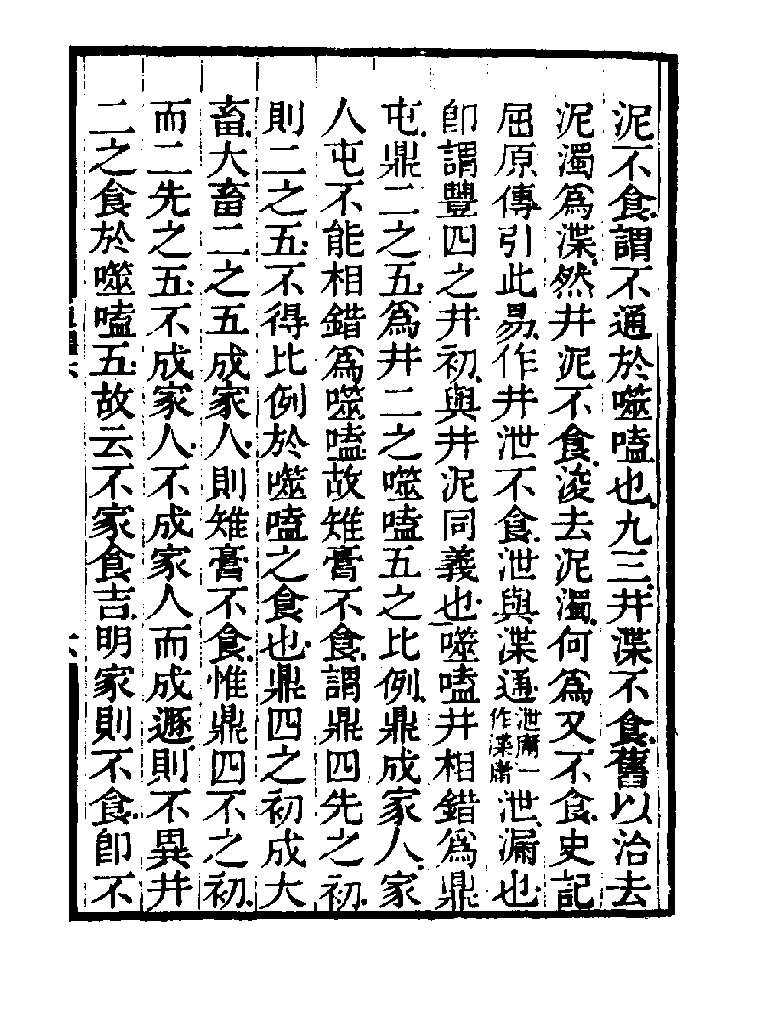 泥不食謂不通於噬嗑也九三井渫不食舊以治去
泥濁爲渫然井泥不食浚去泥濁何爲又不食史記
屈原傳引此易作井泄不食泄與渫通泄爾一作渫爾泄漏也
卽謂豐四之井初與井泥同義也噬嗑井相錯爲鼎
屯鼎二之五爲井二之噬嗑五之比例鼎成家人家
人屯不能相錯爲噬嗑故雉膏不食謂鼎四先之初
則二之五不得比例於噬嗑之食也鼎四之初成大
畜大畜二之五成家人則雉膏不食惟鼎四不之初
而二先之五不成家人不成家人而成遯則不異井
二之食於噬嗑五故云不家食吉明家則不食卽不